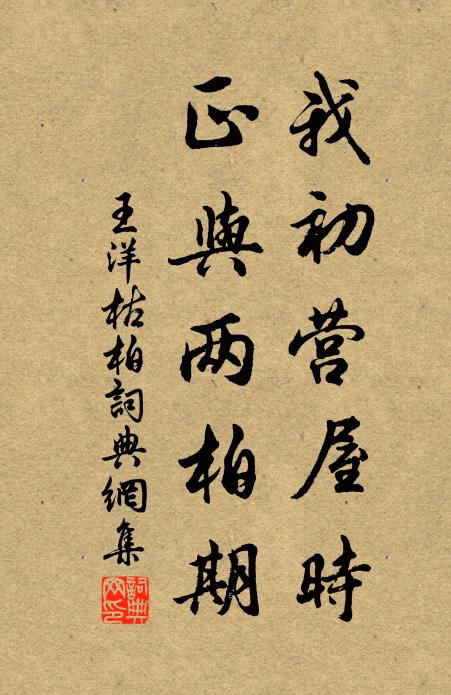 我初营屋時
正與两柏期
王洋枯柏詞典網集
詞典网印